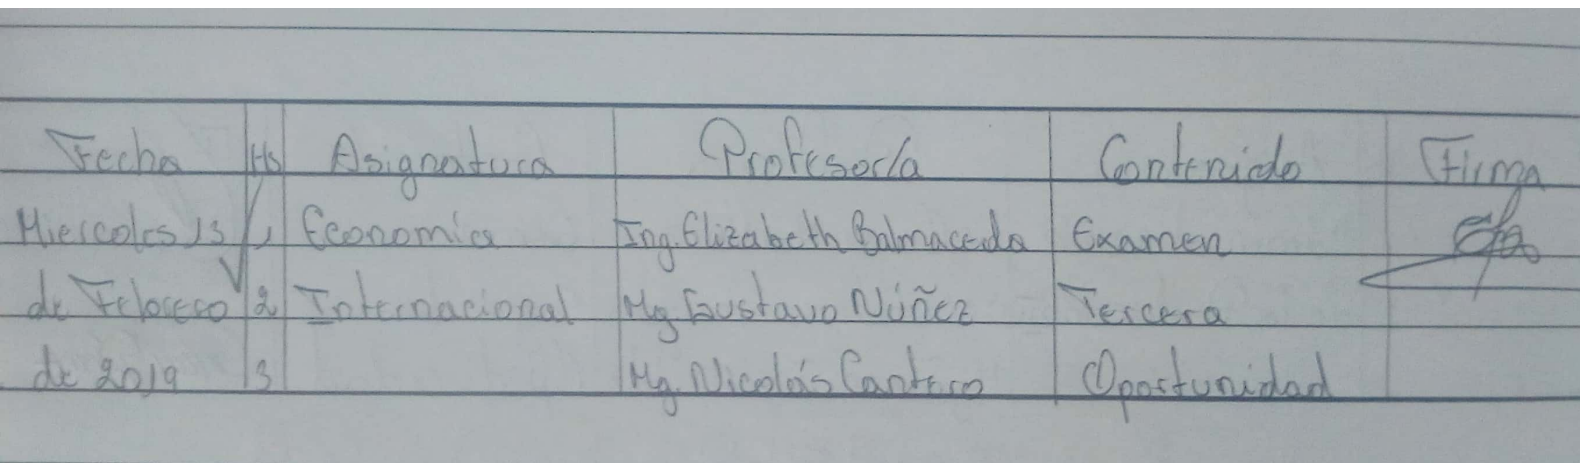 Fecha Hs Asignatura Profesor/a Contenido Firma
Miercoles 13 1 Economia Ing. Elizabeth Balmaceda Examen
de Febrero 2 Internacional Mg Gustavo Núñez Tercera
de 2019 3 Mg. Nicolás Cantero Oportunidad